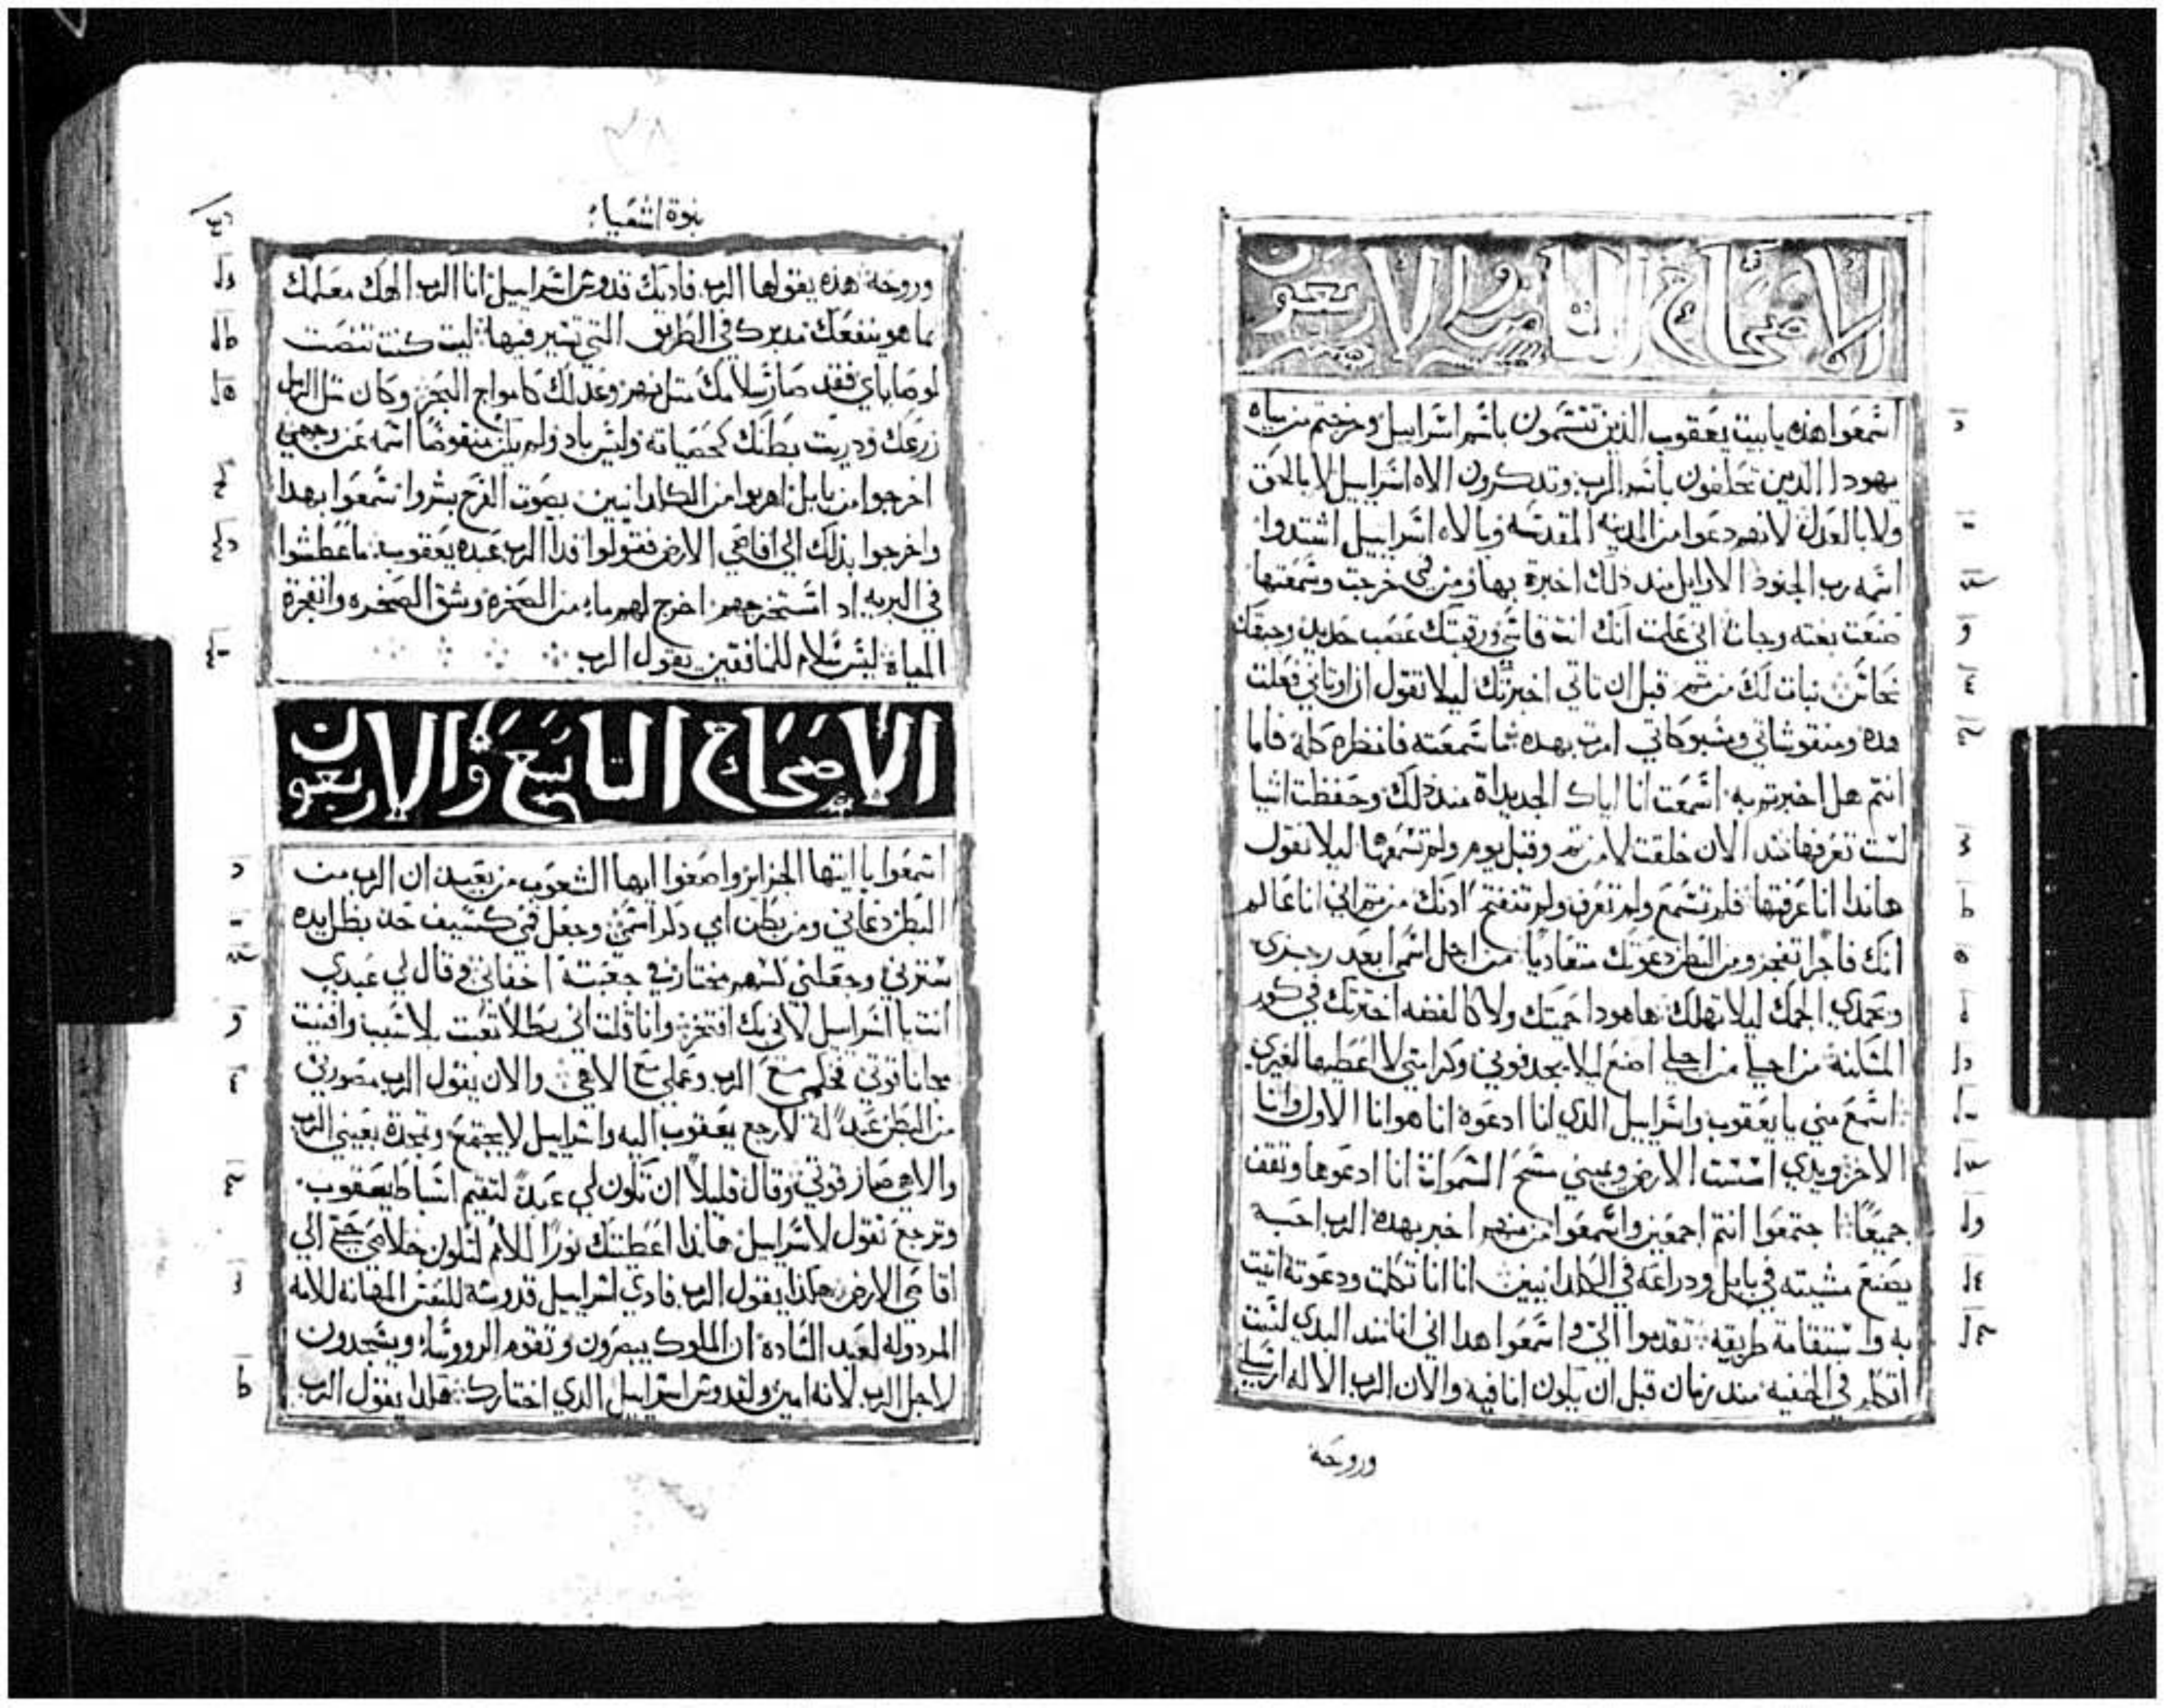 الاصحاح الثامن والاربعون
اسمعوا هذه يا بيت يعقوب الذين تتسمون باسم اسراييل وخرجتم من مياه
يهودا الذين تحلفون باسم الرب وتدكرون الاه اسراييل لا بالحق
ولا بالعدل لانهم دعوا من المدينه المقدسه وبالاه اسراييل اشتدوا
اسمه رب الجنود الاوايل مند دلك اخبرة بها ومن فمي خرجت وسمعتها
صنعت بغته وجات اني علمت انك انت قاسي ورقبتك عصب حديد وجبهتك
نحاس نبات لك من تم قبل ان تاتي اخبرتك ليلا تقول ان اوتاني فعلت
هده ومنقوشاتي ومسبوكاتي امرت بهده ما سمعته فانظره كله فاما
انتم هل اخبرتم به اسمعت انا اياك الجديداة مند دلك وحفظت اشيا
لست تعرفها مند الان خلقت لا من تم وقبل يوم ولم تسمعها ليلا تقول
هاندا انا عرفتها فلم تسمع ولم تعرف ولم تنفتح ادنك من تم اني انا عالم
انك فاجرا تفجر ومن البطن دعوتك متعاديا من اجل اسمي ابعد رجزي
وبحمدي الجمك ليلا تهلك هاهودا حميتك ولا كالفضه اخترتك في كور
المسكنة من اجلي من اجلي اصنع ليلا يجدفوني وكرامتي لا اعطيها لغيري
اسمع مني يا يعقوب واسراييل الدي انا ادعوه انا هو انا الاول وانا
الاخر ويدي اسست الارض ويميني مسح السمواة انا ادعوها وتقف
جميعا اجتمعوا انتم اجمعين واسمعوا من منهم اخبر بهده الرب احبه
يصنع مشيته في بابل ودراعه في الكلدانيين انا انا تكلمت ودعوته اتيت
به واستقامة طريقه تقدموا الي واسمعوا هدا اني انا مند البدي لست
اتكلم في الخفيه مند زمان قبل ان يكون انا فيه والان الرب الاله ارسلني
وروحه
نبوة اشعياء
وروحه هذه يقولها الرب فاديك قدوس اسراييل انا الرب الهك معلمك
بما هو ينفعك مدبرك في الطريق التي تسير فيها ليت كنت تنصت
لوصاياي فقد صار سلامك مثل نهر وعدلك كامواج البحر وكان مثل الرمل
زرعك ودريت بطنك كحصياته وليس باد ولم يكن منقوضا اسمه عن وجهي
اخرجوا من بابل اهربوا من الكلدانيين بصوت الفرح بشروا سمعوا بهدا
واخرجوا بذلك الي اقاصي الارض فقولوا فدا الرب عبده يعقوب ما عطشوا
في البريه اد استخرجهم اخرج لهم ماء من الصخرة وشق الصخره وانفجرة
المياة ليس سلام للمنافقين يقول الرب
الاصحاح التاسع والاربعون
اسمعوا يا ايتها الجزاير واصغوا ايها الشعوب من بعيد ان الرب من
البطن دعاني ومن بطن امي دكر اسمي وجعل فمي كسيف حاد بظل يده
سترني وجعلني كسهم مختار في جعبته اخفاني وقال لي عبدي
انت يا اسراييل لاني بك افتخر وانا قلت اني بطلا تعبت بلا سبب وافنيت
مجانا قوتي فحكمي مع الرب وعملي مع الاهي والان يقول الرب مصورني
من البطن عبدا له لارجع يعقوب اليه واسراييل لا يجتمع وتمجدة بعيني الرب
والاهي صار قوتي وقال قليلا ان تكون لي عبدا لتقيم اسباط يعقوب
وترجع تقول لاسراييل هاندا اعطيتك نورا للامم لتكون خلاصي حتي الي
اقاصي الارض هكدا يقول الرب فادي اسراييل قدوسه للنفس المهانة للامه
المردوله لعبد السادة ان الملوك يبصرون وتقوم الرووساء ويسجدون
لاجل الرب لانه امين ولقدوس اسراييل الدي اختارك هكدا يقول الرب